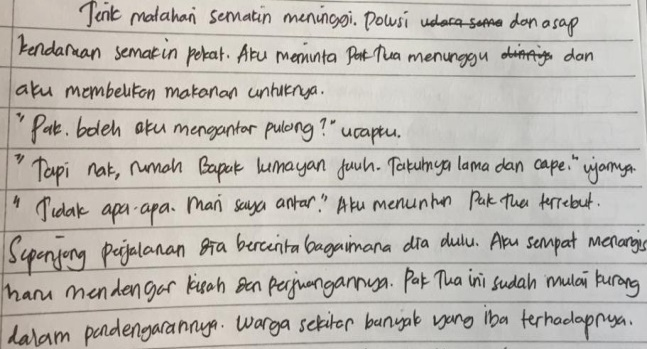 Terik matahari semakin meninggi. Polusi udara serta dan asap
kendaraan semakin pekat. Aku meminta Pak Tua menunggu dan
aku membelikan makanan untuknya.
"Pak. boleh aku mengantar pulang?" ucapku.
"Tapi nak, rumah Bapak lumayan jauh. Takutnya lama dan cape." ujarnya.
"Tidak apa-apa. Mari saya antar." Aku menuntun Pak Tua tersebut.
Sepanjang perjalanan dia bercerita bagaimana dia dulu. Aku sempat menangis
haru mendengar kisah dan perjuangannya. Pak Tua ini sudah mulai kurang
dalam pendengarannya. Warga sekitar banyak yang iba terhadapnya.